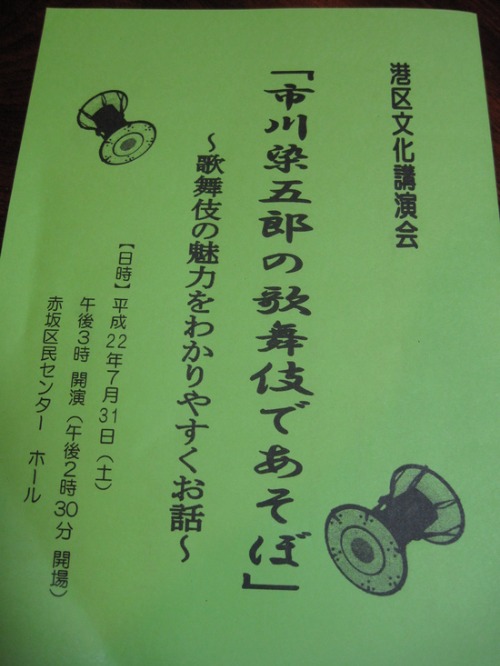 港区文化講演会
「市川染五郎の歌舞伎であそぼ」
～歌舞伎の魅力をわかりやすくお話～
【日時】平成22年7月31日（土）
午後3時 開演（午後2時30分 開場）
赤坂区民センター ホール